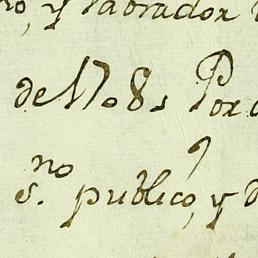 no, y labrador
de 1708, Por
s.no publico, y